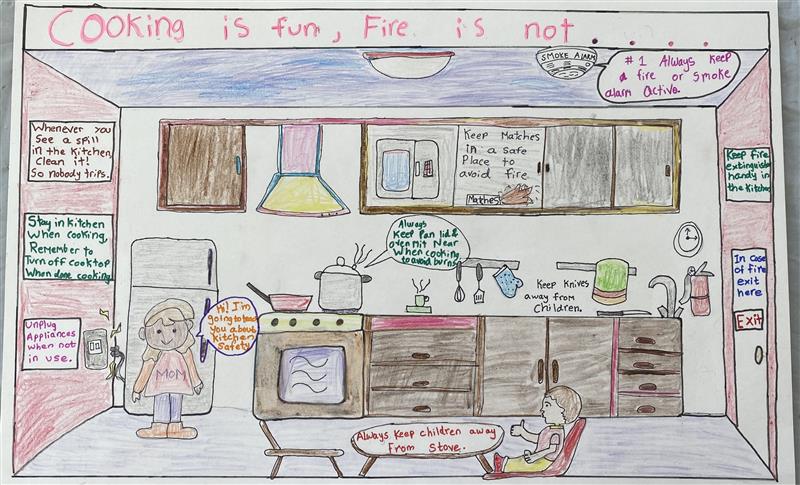 Cooking is fun, Fire is not.....
SMOKE ALARM
#1 Always Keep
a fire or smoke
alarm active.
Whenever you
See a spill
in the kitchen,
Clean it!
So nobody trips.
Keep Matches
in a safe
Place to
avoid fire
Matches
Keep fire
extinguisher
handy in
the kitchen
Stay in kitchen
When cooking,
Remember to
Turn off cooktop
When done cooking
Always
Keep Pan lid &
oven mit Near
When cooking
to avoid burns
In case
of fire
exit
here
Exit
Keep knives
away from
Children.
Hi! I'm
going to teach
you about
kitchen
Safety
Unplug
Appliances
when not
in use.
MOM
Always keep children away
From Stove.